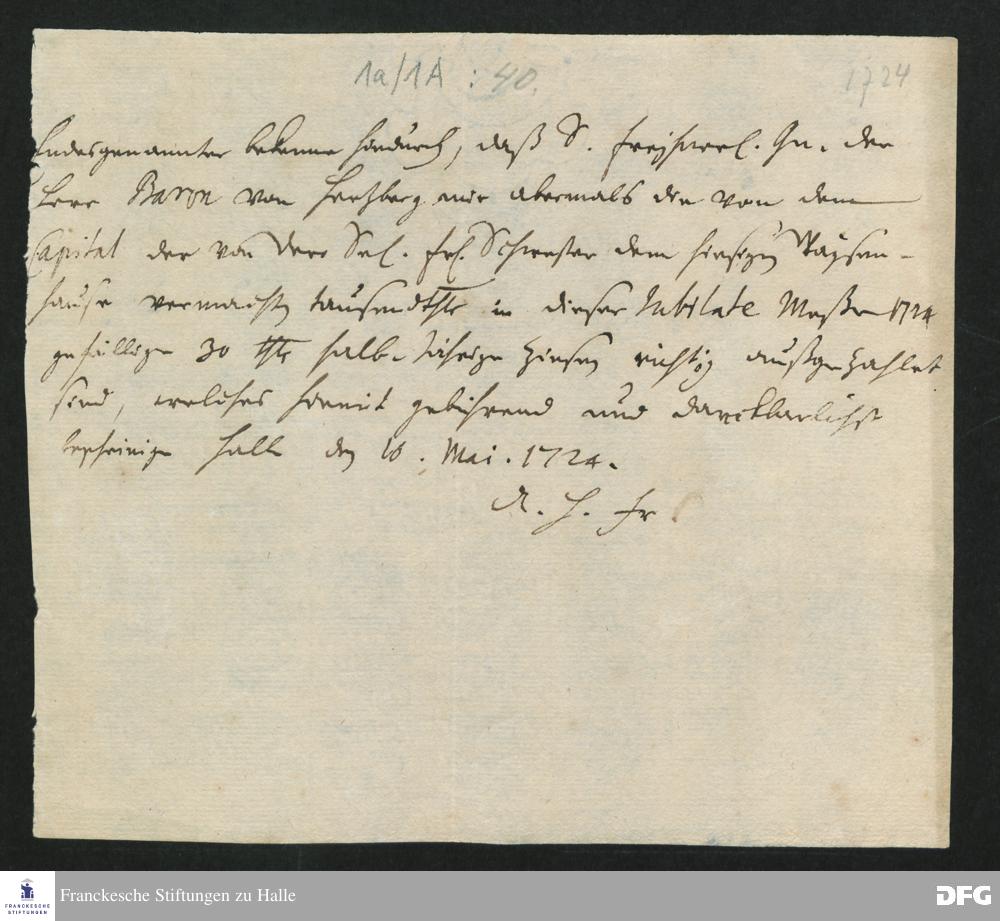 1a/1A : 40.
1724
Endesgenannter bekenne hirdurch, daß S. Freyherrl. Gn. der
Herr Baron von Hertzberg mir abermals die von dem
Capital der von Dero Sel. Frl. Schwester dem hiesigen Waysen-
hause vermachten tausend Thlr in dieser Jubilate Meße 1724
gefällige 30 Thlr halb-Jährige Zinsen richtig außgezahlet
sind, welches hiemit gebührend und danckbarlichst
bescheinige Halle den 16. Mai. 1724.
A. H. Fr
Franckesche Stiftungen zu Halle
FRANCKESCHE
STIFTUNGEN
DFG